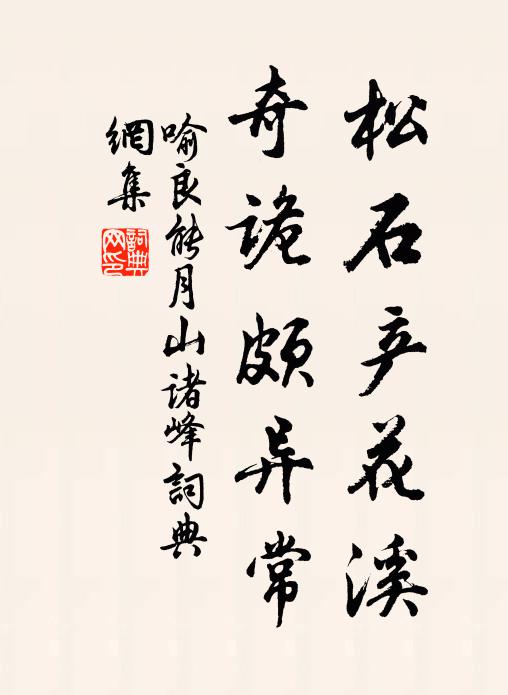 松石产花溪
奇诡颇异常
喻良能月山诸峰詞典
網集
詞典
网印